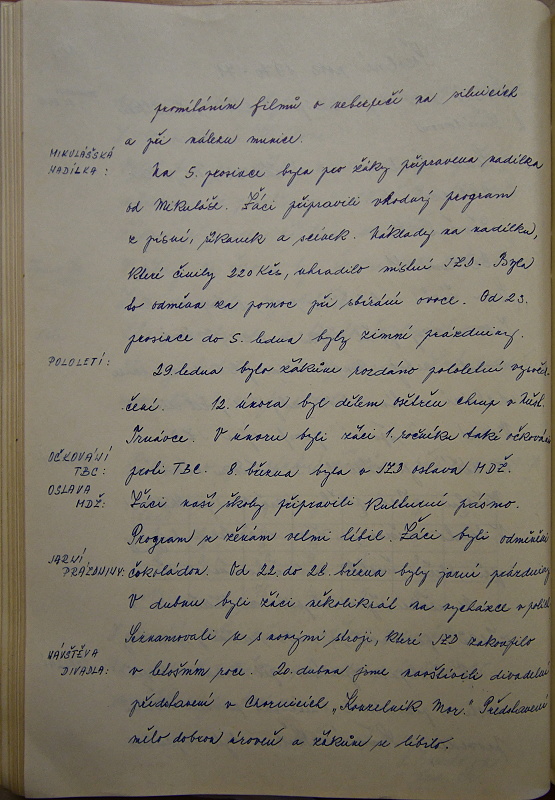 promítáním filmů o nebezpečí na silnicích
a při nálezu munice.
MIKULÁŠSKÁ
NADÍLKA:
Na 5. prosince byla pro žáky připravena nadílka
od Mikuláše. Žáci připravili vhodný program
z písní, básnek a scének. Náklady na nadílku,
které činily 220 Kčs, uhradilo místní JZD. Byla
to odměna za pomoc při sbírání ovoce. Od 23.
prosince do 5. ledna byly zimní prázdniny.
POLOLETÍ:
29. ledna bylo žákům rozdáno pololetní vysvěd-
čení. 12. února byl dětem ošetřen chrup v Měst.
Trnávce. V únoru byli žáci 1. ročníku také očkováni
OČKOVÁNÍ
TBC:
proti TBC. 8. března byla v JZD oslava MDŽ.
OSLAVA
MDŽ:
Žáci naší školy připravili kulturní pásmo.
Program se ženám velmi líbil. Žáci byli odměněni
JARNÍ
PRÁZDNINY:
čokoládou. Od 22. do 28. března byly jarní prázdniny
V dubnu byli žáci několikrát na vycházce v polích
Seznamovali se s novými stroji, které JZD zakoupilo
NÁVŠTĚVA
DIVADLA:
v letošním roce. 20. dubna jsme navštívili divadelní
představení v Chornicích „Kouzelník Mor." Představení
mělo dobrou úroveň a žákům se líbilo.